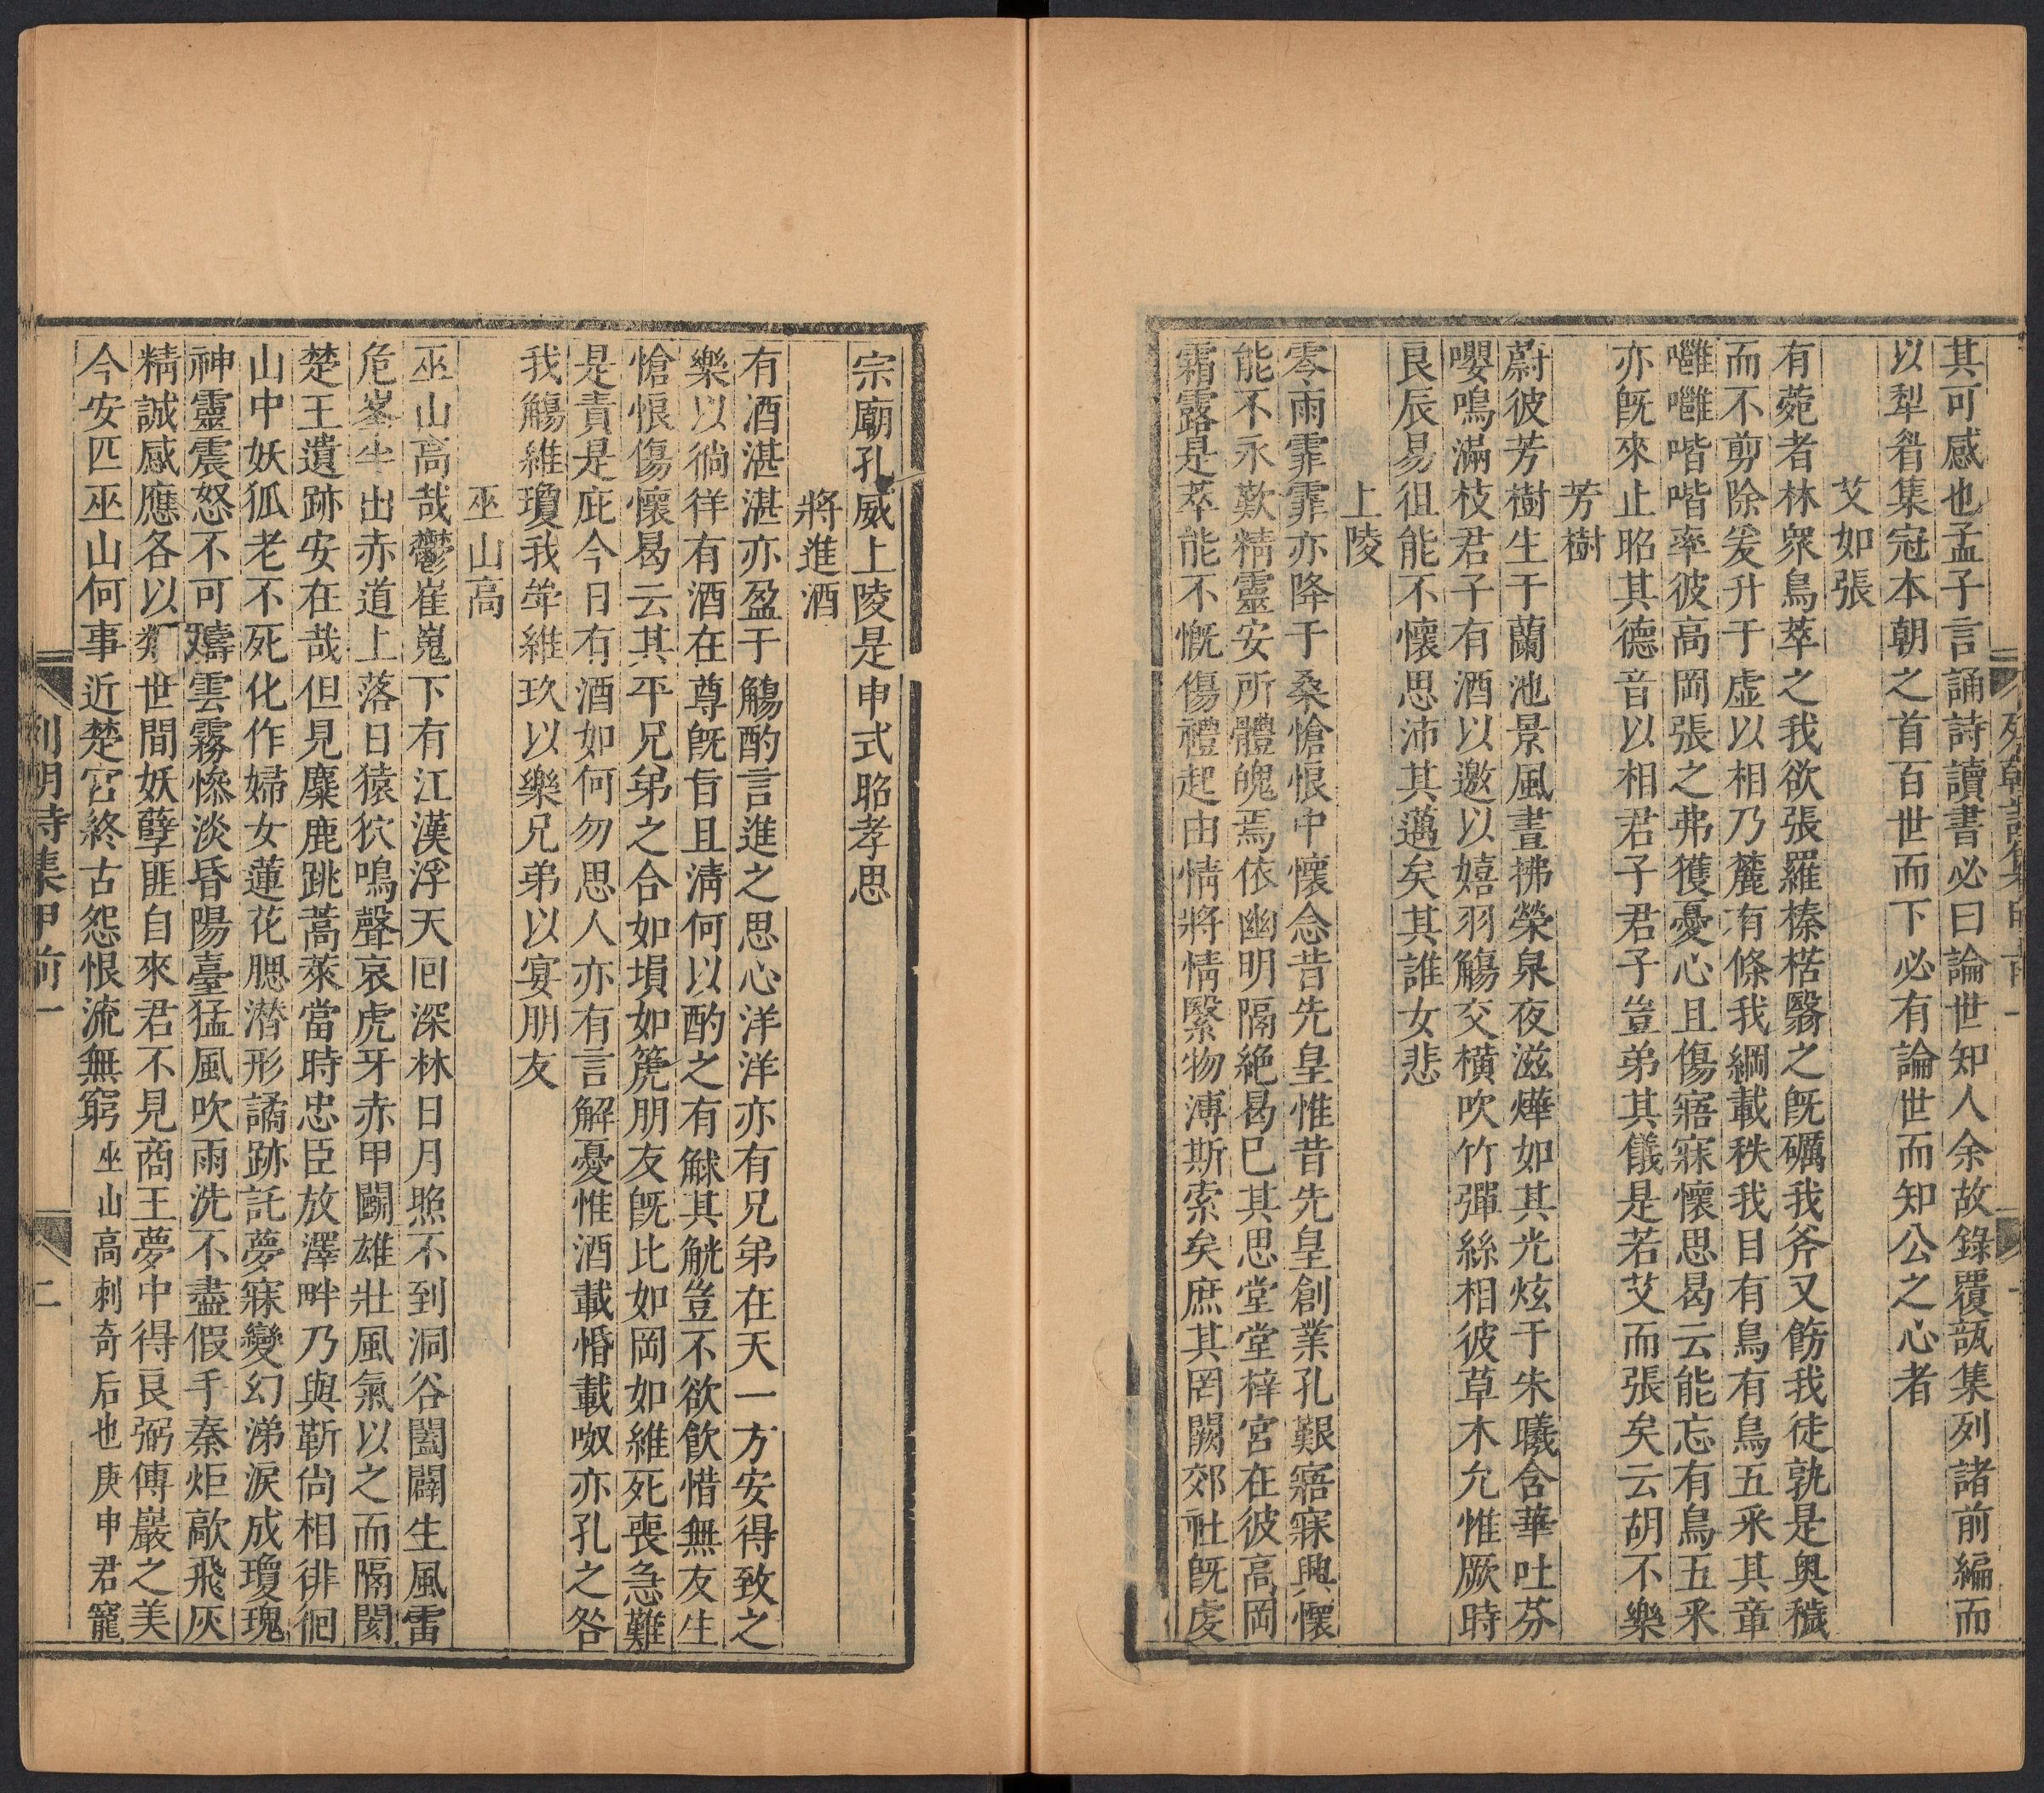 其可感也孟子言誦詩讀書必曰論世知人余故錄覆瓿集列諸前編而
以犁眉集冠本朝之首百世而下必有論世而知公之心者
艾如張
有菀者林衆鳥萃之我欲張羅榛楛翳之旣礪我斧又飭我徒孰是奧穢
而不剪除爰升于虛以相乃麓有條我綱載秩我目有鳥有鳥五采其章
嗈嗈喈喈率彼高岡張之弗獲憂心且傷寤寐懷思曷云能忘有鳥五采
亦旣來止昭其德音以相君子君子豈弟其儀是若艾而張矣云胡不樂
芳樹
蔚彼芳樹生于蘭池景風晝拂榮泉夜滋燁如其光炫于朱曦含華吐芬
嚶鳴滿枝君子有酒以邀以嬉羽觴交橫吹竹彈絲相彼草木允惟厥時
良辰易徂能不懷思沛其邁矣其誰女悲
上陵
零雨霏霏亦降于桑愴悢中懷念昔先皇惟昔先皇創業孔艱寤寐興懷
能不永歎精靈安所體魄焉依幽明隔絶曷巳其思堂堂梓宮在彼高岡
霜露是萃能不慨傷禮起由情將情繄物溥斯索矣庶其罔闕郊社旣虔
宗廟孔威上陵是申式昭孝思
將進酒
有酒湛湛亦盈于觴酌言進之思心洋洋亦有兄弟在天一方安得致之
樂以徜徉有酒在尊旣旨且淸何以酌之有觩其觥豈不欲飲惜無友生
愴悢傷懷曷云其平兄弟之合如塤如箎朋友旣比如岡如維死喪急難
是責是庇今日有酒如何勿思人亦有言解憂惟酒載惛載呶亦孔之咎
我觴維瓊我斝維玖以樂兄弟以宴朋友
巫山高
巫山高哉鬱崔嵬下有江漢浮天囘深林日月照不到洞谷闔闢生風雷
危峯半出赤道上落日猿狖鳴聲哀虎牙赤甲鬭雄壯風氣以之而隔閡
楚王遺跡安在哉但見麋鹿跳蒿萊當時忠臣放澤畔乃與靳尙相徘徊
山中妖狐老不死化作婦女蓮花腮潛形譎跡託夢寐變幻涕淚成瓊瑰
神靈震怒不可禱雲霧慘淡昏陽臺猛風吹雨洗不盡假手秦炬歊飛灰
精誠感應各以類世間妖孽匪自來君不見商王夢中得良弼傅巖之美
今安匹巫山何事近楚宮終古怨恨流無窮巫山高刺奇后也庚申君寵
列朝詩集甲前一
二